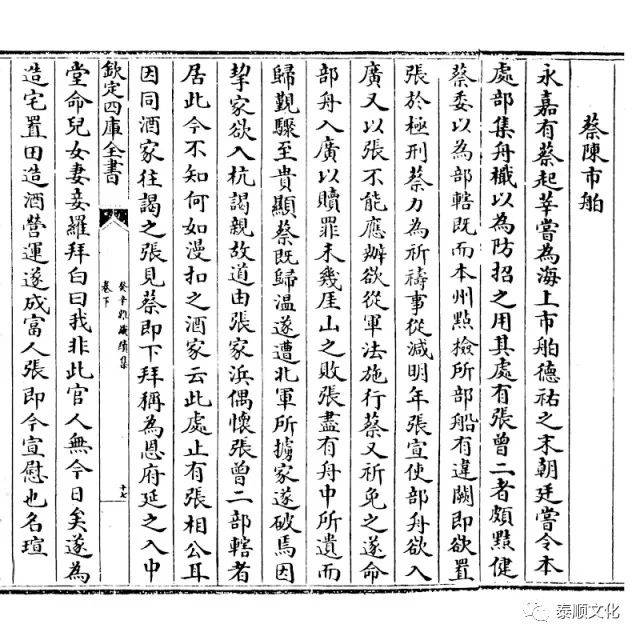 蔡陳市舶
永嘉有蔡起莘嘗為海上市舶德祐之末朝廷嘗令本
處部集舟檝以為防招之用其處有張曾二者頗黠健
蔡委以為部轄既而本州㸃檢所部船有違闕即欲置
張於極刑蔡力為祈禱事從減明年張宣使部舟欲入
廣又以張不能應辦欲從軍法施行蔡又祈免之遂命
部舟入廣以贖罪未幾厓山之敗張盡有舟中所遺而
歸覲驟至貴顯蔡既歸溫遂遭北軍所擄家遂破焉因
挈家欲入杭謁親故道由張家浜偶懷張曾二部轄者
居此今不知何如漫扣之酒家云此處止有張相公耳
因同酒家往謁之張見蔡即下拜稱為恩府延之入中
欽定四庫全書
癸辛雜識續集
卷下
十七
堂命兒女妻妾羅拜白曰我非此官人無今日矣遂為
造宅置田造酒營運遂成富人張即今宣慰也名瑄
泰顺文化